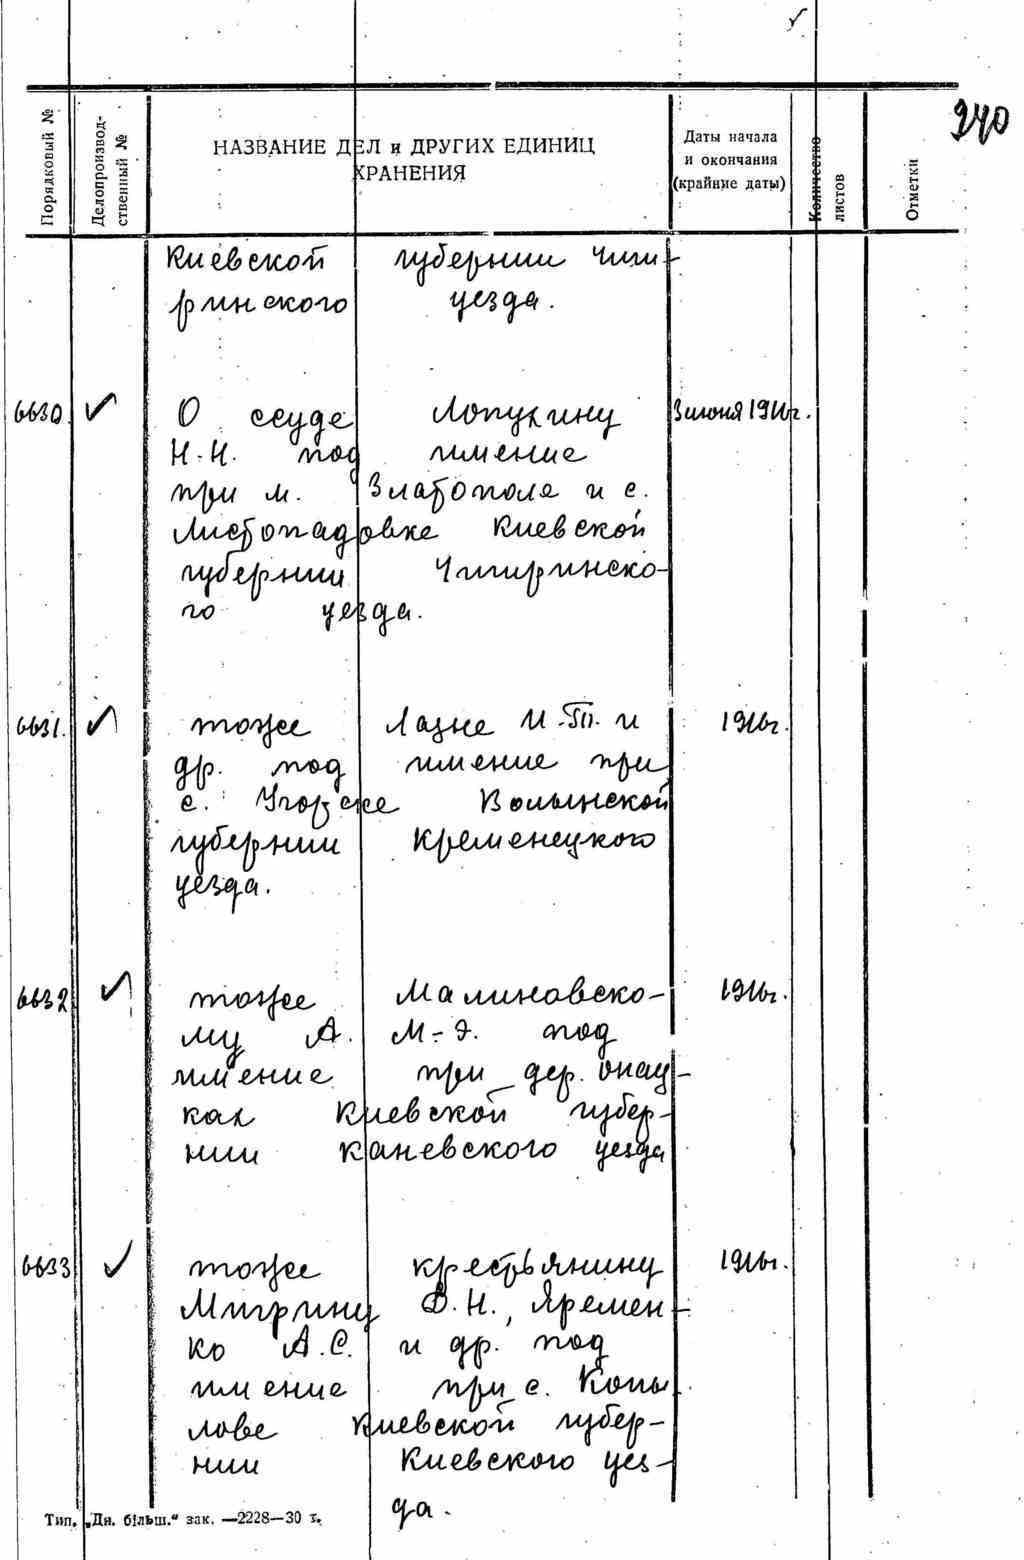 240
Порядковый №
Делопроизвод-
ственный №
НАЗВАНИЕ ДЕЛ и ДРУГИХ ЕДИНИЦ
ХРАНЕНИЯ
Даты начала
и окончания
(крайние даты)
Количество
листов
Отметки
Киевской губернии Чиги-
ринского уезда.
6630 О ссуде Лопухину 3 июня 1916г.
Н.Н. под имение
при м. Златополе и с.
Листопадовке Киевской
губернии Чигиринско-
го уезда.
6631. тоже Лазне И.-П. и 1916г.
др. под имение при
с. Угорске Волынской
губернии Кременецкого
уезда.
6632 тоже Малиновско- 1916г.
му А. М.-Э. под
имение при дер.
ках Киевской губер-
нии Каневского уезда
6633 тоже крестьянину 1916г.
Мигрину Ф.Н., Яремен-
ко А.С. и др. под
имение при с. Копы
лове Киевской губер-
нии Киевского уез-
да.
Тип. „Дн. більш.“ зак. —2228—30 т.